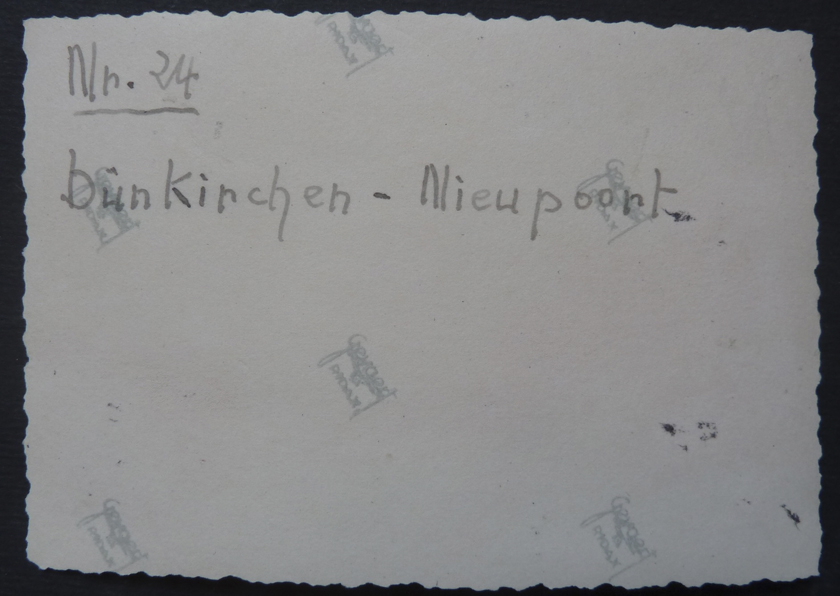 Nr. 24
Dünkirchen - Nieupoort